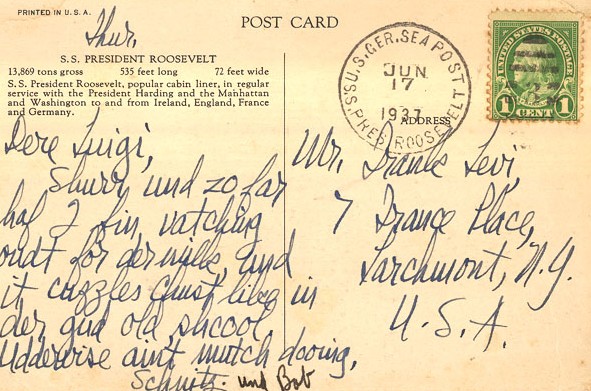 PRINTED IN U.S.A.
POST CARD
Thur.
S.S. PRESIDENT ROOSEVELT
13,869 tons gross 535 feet long 72 feet wide
S. S. President Roosevelt, popular cabin liner, in regular
service with the President Harding and the Manhattan
and Washington to and from Ireland, England, France
and Germany.
U.S.GER.SEA POST
S.S. PRES ROOSEVELT
JUN
17
1937
UNITED STATES POSTAGE
1 CENT 1
ADDRESS
Dere Luigi,
Shurr, und zo far
haf I bin vatching
oudt for der milk, und
it cozzles chust like in
der gud old shcool.
Udderwise ain't mutch dooing,
Schnitz und Bob
Mr. Frank Levi,
7 France Place,
Larchmont, N.Y.
U.S.A.